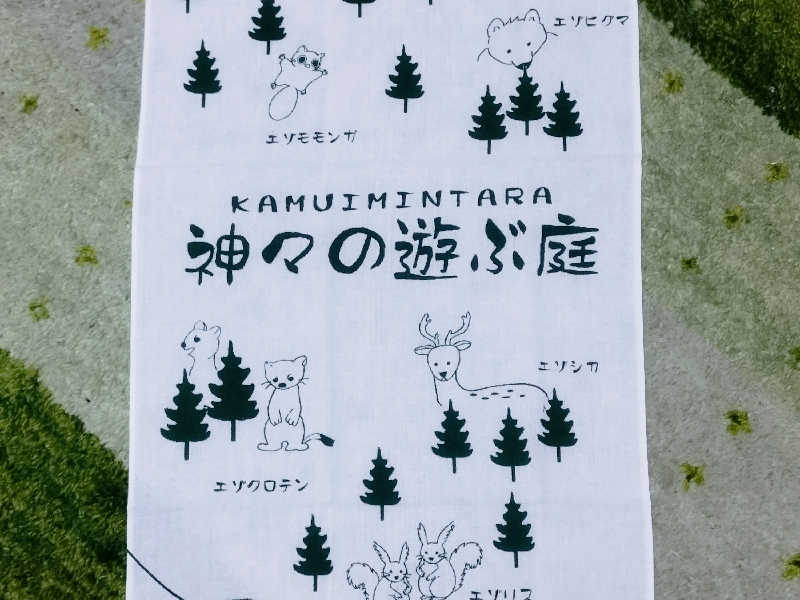 エゾヒグマ
エゾモモンガ
KAMUIMINTARA
神々の遊ぶ庭
エゾシカ
エゾクロテン
エゾリス